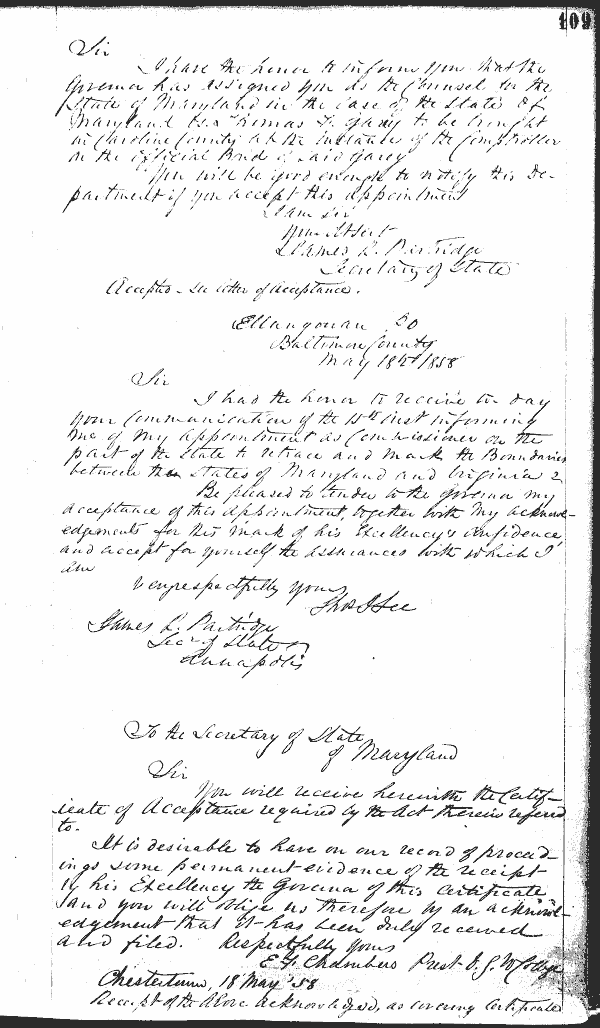 109
Sir
I have the honor to inform you that the
Governor has assigned you as the Counsel for the
State of Maryland in the case of the State of
Maryland vs. Thomas F. Garey to be brought
in Caroline County at the instance of the Comptroller
on the official Bond of said Garey
You will be good enough to notify this De-
partment if you accept this appointment
I am Sir
Your Obsert
James R. Partridge
Secretary of State
Accepted - see letter of acceptance.
Ellangowan PO
Baltimore County
May 18th 1858
Sir
I had the honor to receive to day
your communication of the 15th inst informing
me of my appointment as Commissioner on the
part of the State to retrace and mark the Boundaries
between the States of Maryland and Virginia
Be pleased to tender to the governor my
acceptance of this appointment, together with my acknowl-
edgements for this mark of his Excellency's confidence,
and accept for yourself the assurances with which I
am
very respectfully yours
Thos J Lee
James R. Partridge
Secy of State
Annapolis
To the Secretary of State
of Maryland
Sir
You will receive herewith the Certif-
icate of Acceptance required by the Act therein referred
to.
It is desirable to have on our record of proceed-
ings some permanent evidence of the receipt
by his Excellency the Governor of this certificate
and you will oblige us therefore by an acknowl-
edgement that it has been duly received
and filed. Respectfully yours
E F Chambers Prest V. & G. W College
Chestertown, 18 May '58
Receipt of the above acknowledged, as covering certificate